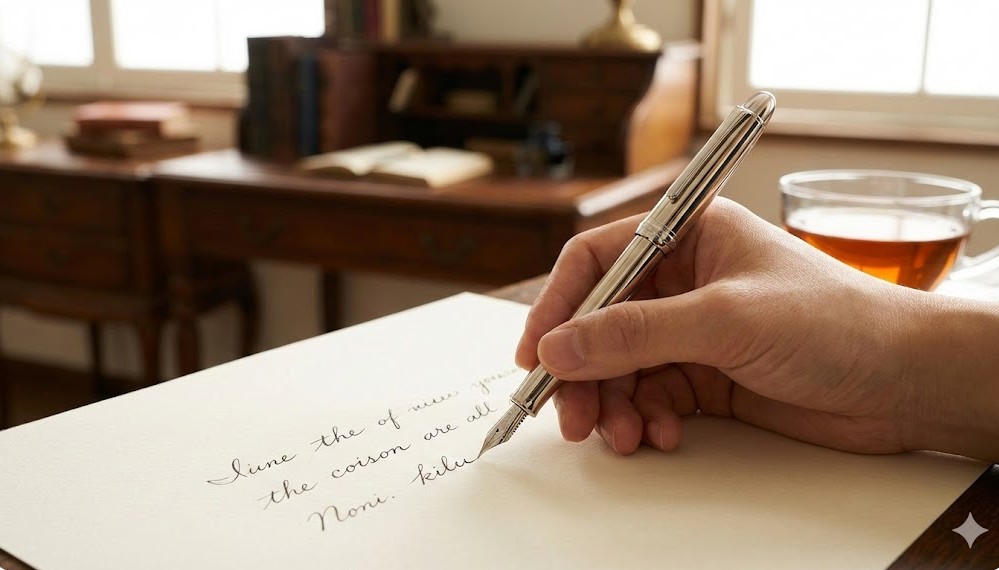 June the of muu your
the coison are all
Noni. kilu